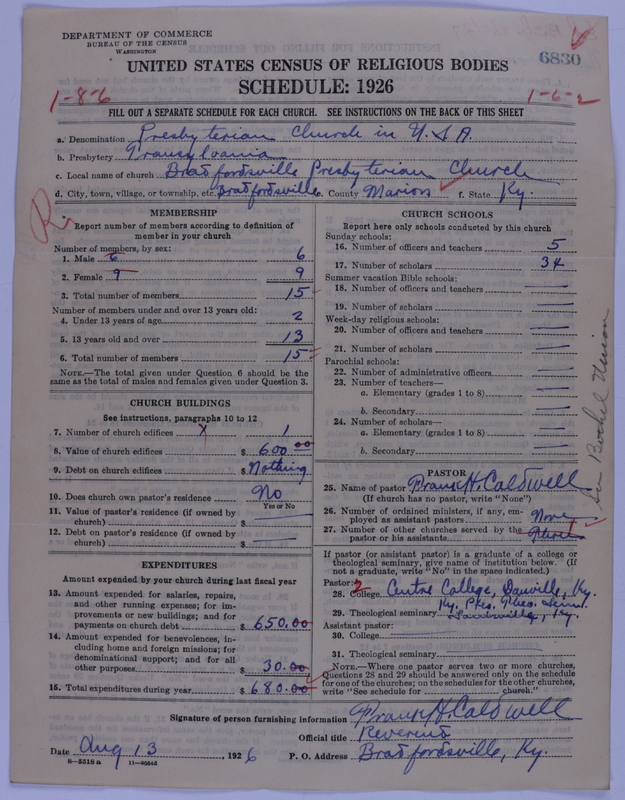 DEPARTMENT OF COMMERCE
BUREAU OF THE CENSUS
WASHINGTON
6830
UNITED STATES CENSUS OF RELIGIOUS BODIES
SCHEDULE: 1926
1-8-6
1-6-2
FILL OUT A SEPARATE SCHEDULE FOR EACH CHURCH. SEE INSTRUCTIONS ON THE BACK OF THIS SHEET
a. Denomination Presbyterian Church in U.S.A.
b. Presbytery Transylvania
c. Local name of church Bradfordsville Presbyterian Church
d. City, town, village, or township, etc. Bradfordsville e. County Marion f. State Ky.
MEMBERSHIP
Report number of members according to definition of
member in your church
Number of members, by sex:
1. Male 6 6
2. Female 9 9
3. Total number of members 15
Number of members under and over 13 years old:
4. Under 13 years of age 2
5. 13 years old and over 13
6. Total number of members 15
NOTE.—The total given under Question 6 should be
same as the total of males and females given under Question 3.
CHURCH BUILDINGS
See instructions, paragraphs 10 to 12
7. Number of church edifices x 1
8. Value of church edifices $ 600.00
9. Debt on church edifices $ Nothing
10. Does church own pastor's residence No
Yes or No
11. Value of pastor's residence (if owned by
church) $
12. Debt on pastor's residence (if owned by
church) $
EXPENDITURES
Amount expended by your church during last fiscal year
13. Amount expended for salaries, repairs,
and other running expenses; for im-
provements or new buildings; and for
payments on church debt $ 650.00
14. Amount expended for benevolences, in-
cluding home and foreign missions; for
denominational support; and for all
other purposes $ 30.00
15. Total expenditures during year $ 680.00
CHURCH SCHOOLS
Report here only schools conducted by this church
Sunday schools:
16. Number of officers and teachers 5
17. Number of scholars 34
Summer vacation Bible schools:
18. Number of officers and teachers
19. Number of scholars
Week-day religious schools:
20. Number of officers and teachers
21. Number of scholars
Parochial schools:
22. Number of administrative officers
23. Number of teachers—
a. Elementary (grades 1 to 8)
b. Secondary
24. Number of scholars—
a. Elementary (grades 1 to 8)
b. Secondary
PASTOR
25. Name of pastor Frank H. Caldwell
(If church has no pastor, write "None")
26. Number of ordained ministers, if any, em-
ployed as assistant pastors None
27. Number of other churches served by the
pastor or his assistants Three
If pastor (or assistant pastor) is a graduate of a college or
theological seminary, give name of institution below. (If
not a graduate, write "No" in the space indicated.)
Pastor: 2
28. College Centre College, Danville, Ky.
29. Theological seminary Ky. Pres. Theo. Semi.
Louisville, Ky.
Assistant pastor:
30. College
31. Theological seminary
NOTE.—Where one pastor serves two or more churches,
Questions 28 and 29 should be answered only on the schedule
for one of the churches; on the schedules for the other churches,
write "See schedule for church."
Signature of person furnishing information Frank H. Caldwell
Official title Reverend
Date Aug 13, 1926 P. O. Address Bradfordsville, Ky.
8-5518 a 11-90545